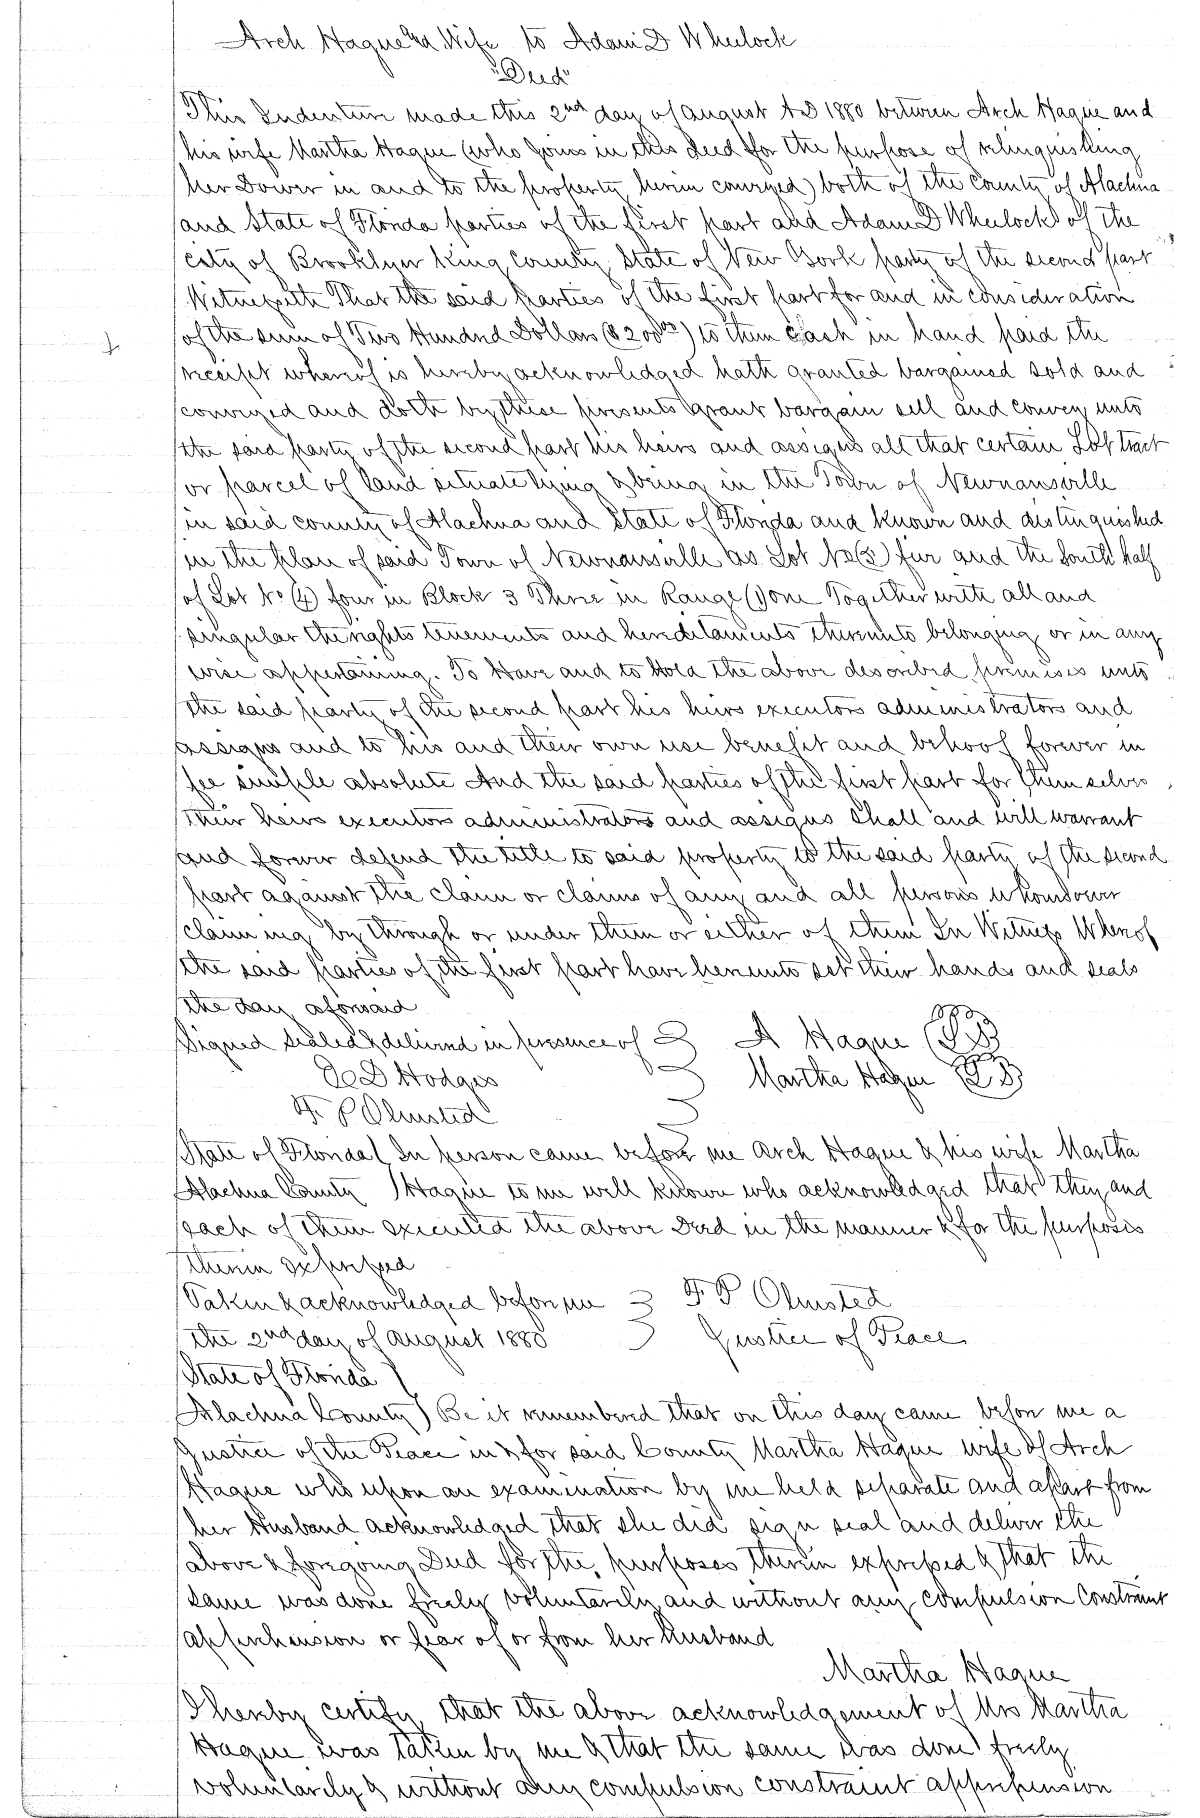 Arch Hague and Wife to Adam D Wheelock
"Deed"
This Indenture made this 2nd day of August AD 1880 between Arch Hague and
his wife Martha Hague (who joins in this deed for the purpose of relinquishing
her Dower in and to the property herein conveyed) both of the County of Alachua
and State of Florida parties of the first part and Adam D Wheelock of the
City of Brooklyn King County State of New York party of the second part
Witnesseth That the said parties of the first part for and in consideration
of the sum of Two Hundred Dollars ($200 00) to them Cash in hand paid the
receipt whereof is hereby acknowledged hath granted bargained sold and
conveyed and doth by these presents grant bargain sell and convey unto
the said party of the second part his heirs and assigns all that certain Lot tract
or parcel of land situate lying & being in the Town of Newnansville
in said county of Alachua and State of Florida and known and distinguished
in the plan of said Town of Newnansville as Lot No (5) five and the South half
of Lot No (4) four in Block 3 Three in Range (1) one Together with all and
singular the rights tenements and hereditaments thereunto belonging or in any
wise appertaining. To Have and to Hold the above described premises unto
the said party of the second part his heirs executors administrators and
assigns and to his and their own use benefit and behoof forever in
fee simple absolute And the said parties of the first part for themselves
their heirs executors administrators and assigns shall and will warrant
and forever defend the title to said property to the said party of the second
part against the claim or claims of any and all persons whomsoever
claiming by through or under them or either of them In Witness Whereof
the said parties of the first part have hereunto set their hands and seals
the day aforesaid
Signed sealed & delivered in presence of A Hague
D Hodges Martha Hague
F. P Olmsted
State of Florida In person came before me Arch Hague & his wife Martha
Alachua County Hague to me well known who acknowledged that they and
each of them executed the above Deed in the manner & for the purposes
therein expressed
Taken & acknowledged before me F. P Olmsted
the 2nd day of August 1880 Justice of Peace
State of Florida
Alachua County Be it remembered that on this day came before me a
Justice of the Peace in & for said County Martha Hague wife of Arch
Hague who upon an examination by me held separate and apart from
her Husband acknowledged that she did sign seal and deliver the
above & foregoing Deed for the purposes therein expressed & that the
same was done freely voluntarily and without any compulsion constraint
apprehension or fear of or from her Husband
Martha Hague
I hereby certify that the above acknowledgement of Mrs Martha
Hague was taken by me & that the same was done freely
voluntarily & without any compulsion constraint apprehension